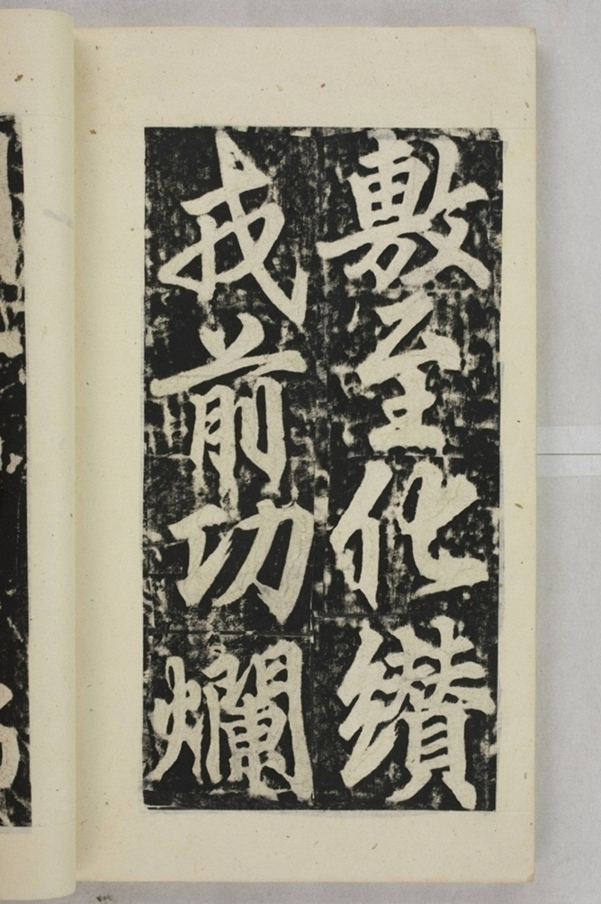 敷至化纘
戎前功爛